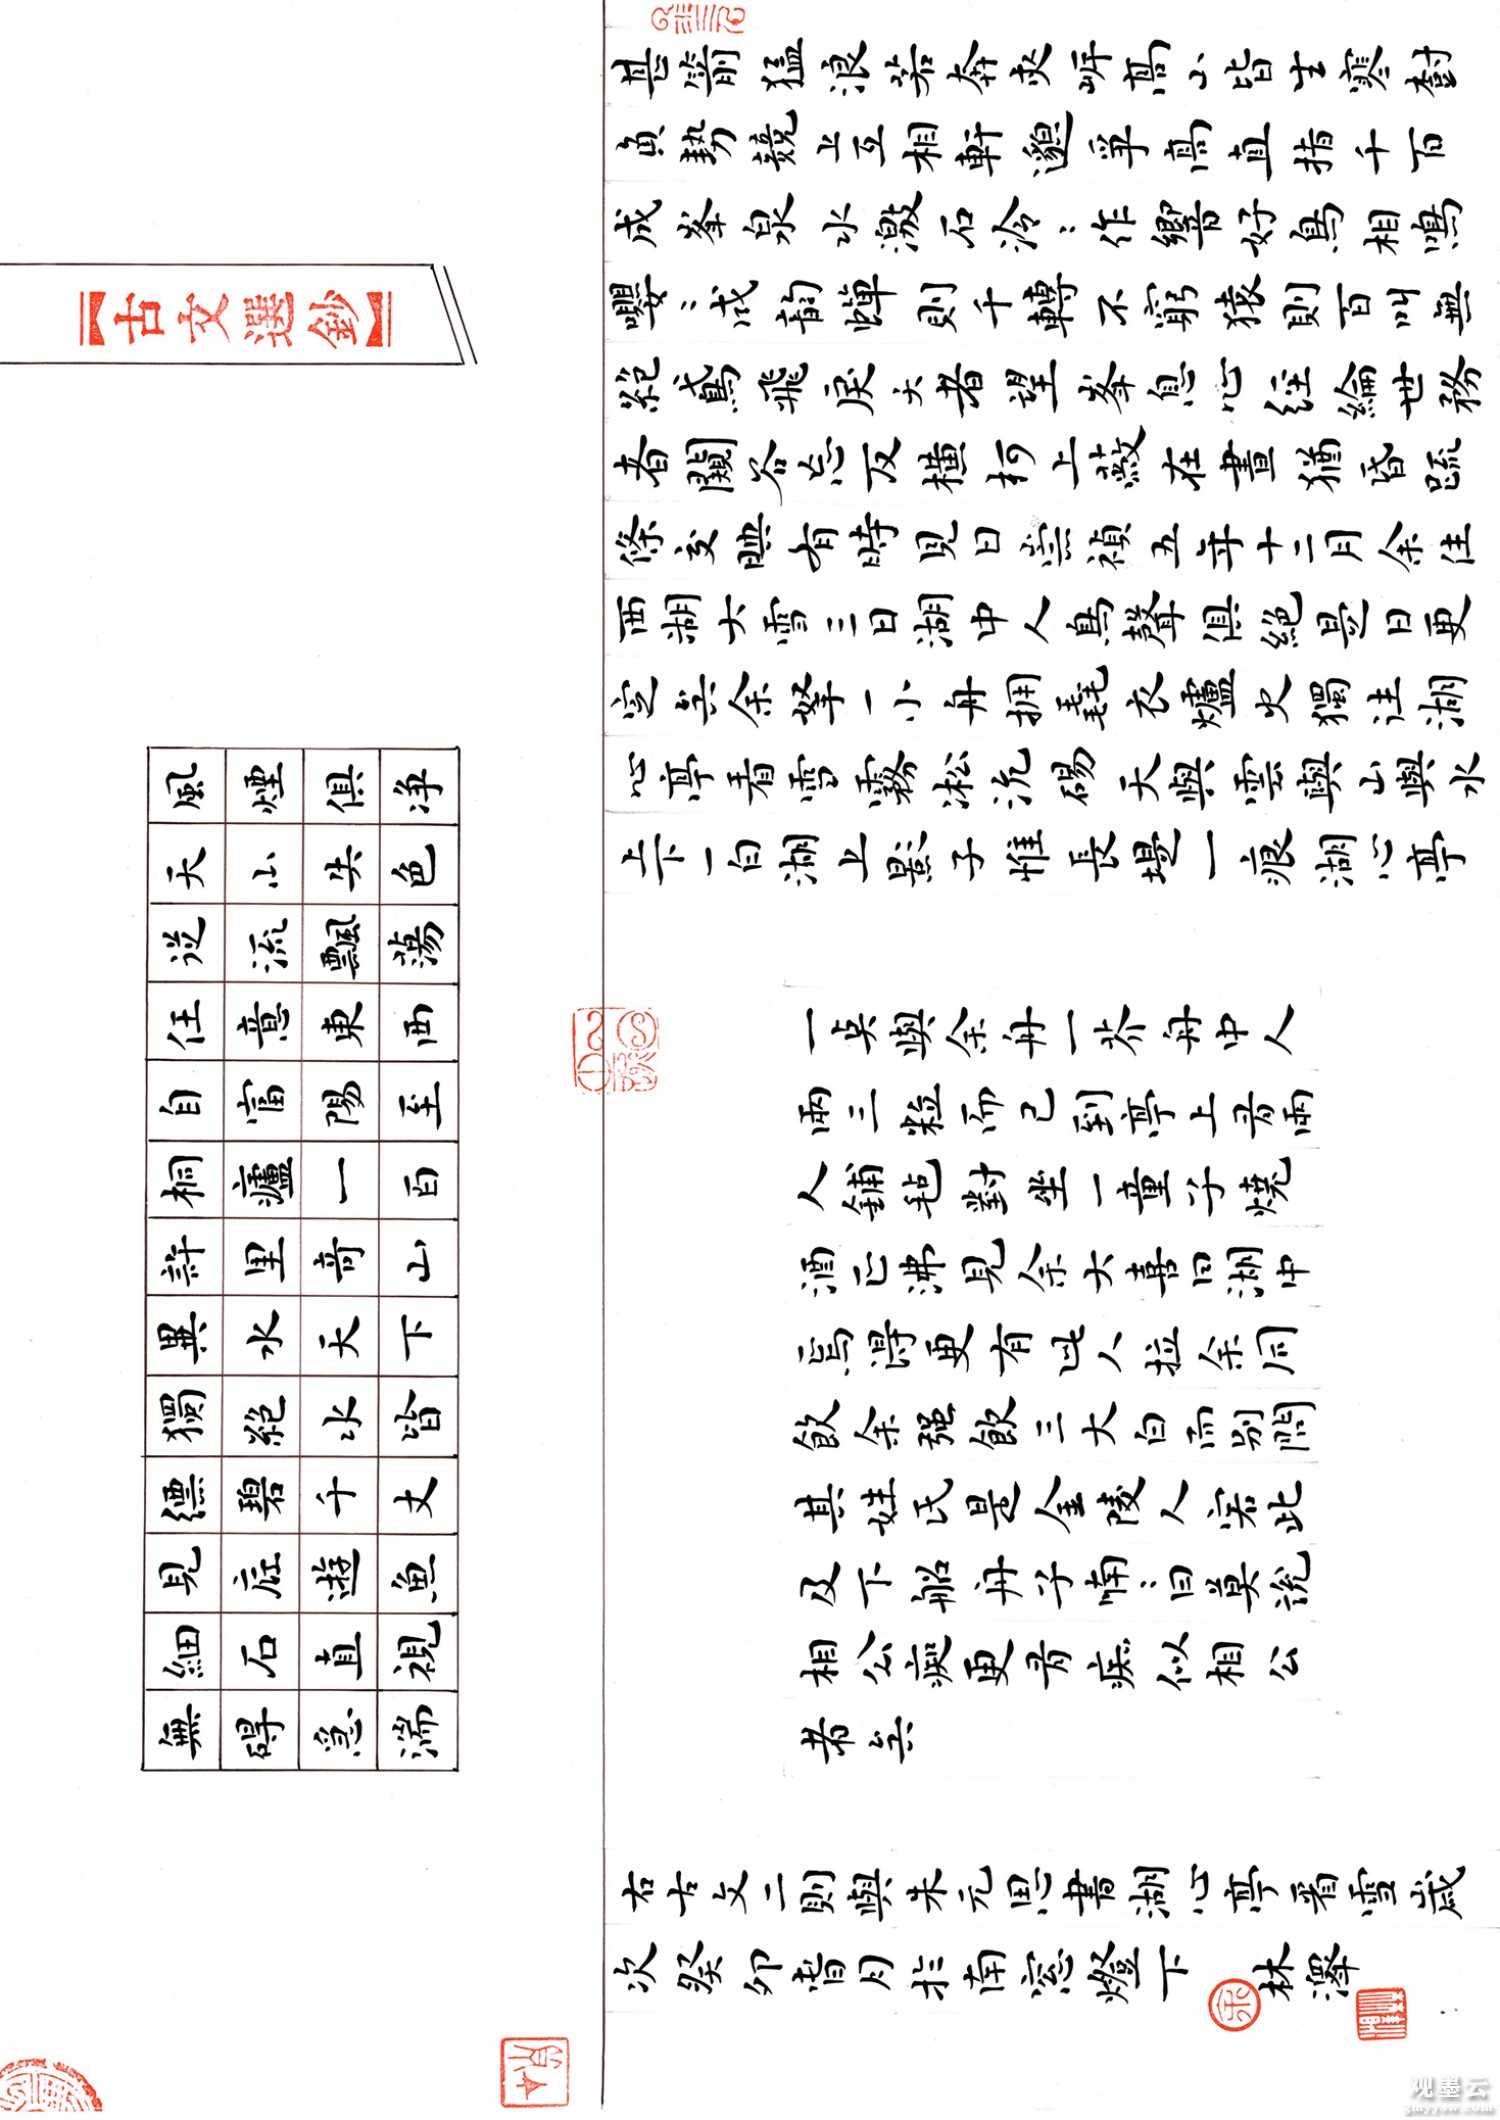 【古文選鈔】
風煙俱净
天山共色
從流飄蕩
任意東西
自富陽至
桐瀘一百
許里奇山
異水天下
獨絕水皆
縹碧千丈
見底遊魚
細石直視
無碍急湍
甚箭猛浪若奔夾岸高山皆生寒樹
負勢競上互相軒邈爭高直指千百
成峯泉水激石泠:作響好鳥相鳴
嚶:成韻蟬則千轉不窮猿則百叫無
絕鳶飛戾天者望峯息心經綸世務
者闚谷忘反橫柯上蔽在晝猶昏疏
條交映有時見日崇禎五年十二月余住
西湖大雪三日湖中人鳥聲俱絕是日更
定矣余拏一小舟擁毳衣爐火獨往湖
心亭看雪霧凇沆碭天與雲與山與水
上下一白湖上影子惟長堤一痕湖心亭
一點與余舟一芥舟中人
兩三粒而已到亭上有兩
人鋪毡對坐一童子燒
酒正沸見余大喜曰湖中
焉得更有此人拉余同
飲余强飲三大白而别問
其姓氏是金陵人客此
及下船舟子喃:曰莫說
相公痴更有痴似相公
者矣
右古文二則與朱元思書湖心亭看雪歲
次癸卯春月於南窓燈下 林澤
观墨云
gmyyow.com